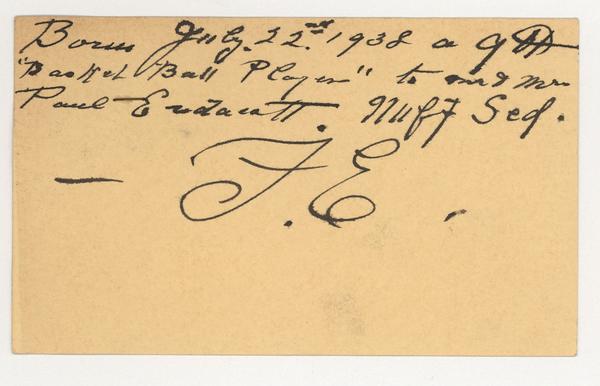 Born July. 22nd. 1938 a 9 lb
"Basket Ball Player" to mr & Mrs
Paul Endacott. Nuf
— F. E.